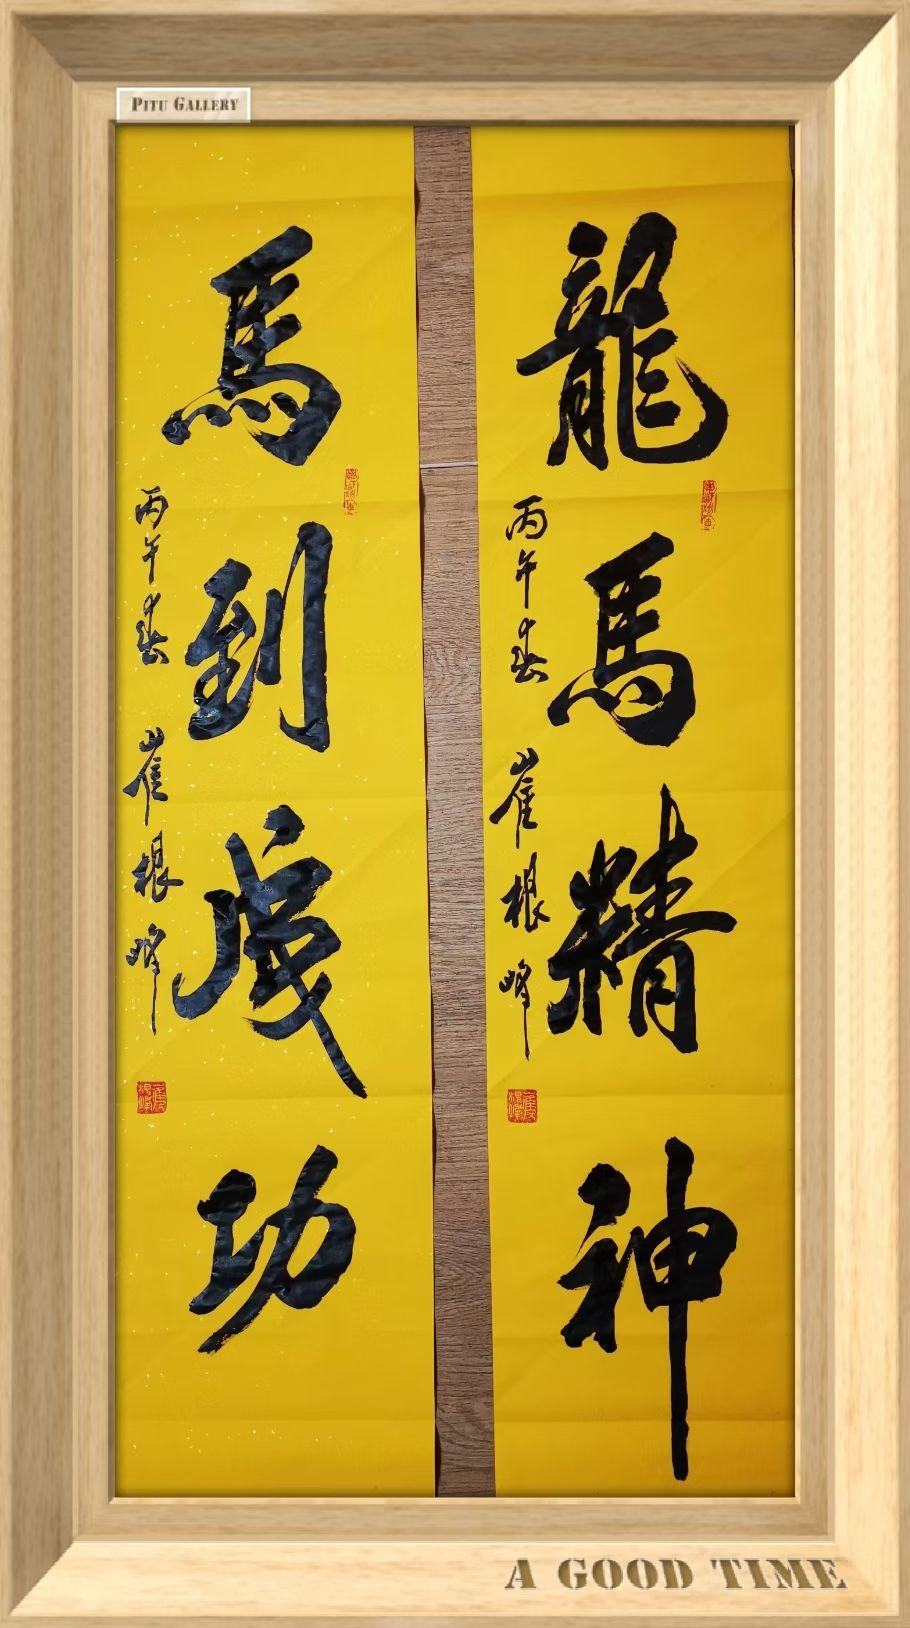 PITU GALLERY
龍馬精神
丙午春 崔根峰
馬到成功
丙午春 崔根峰
A GOOD TIME